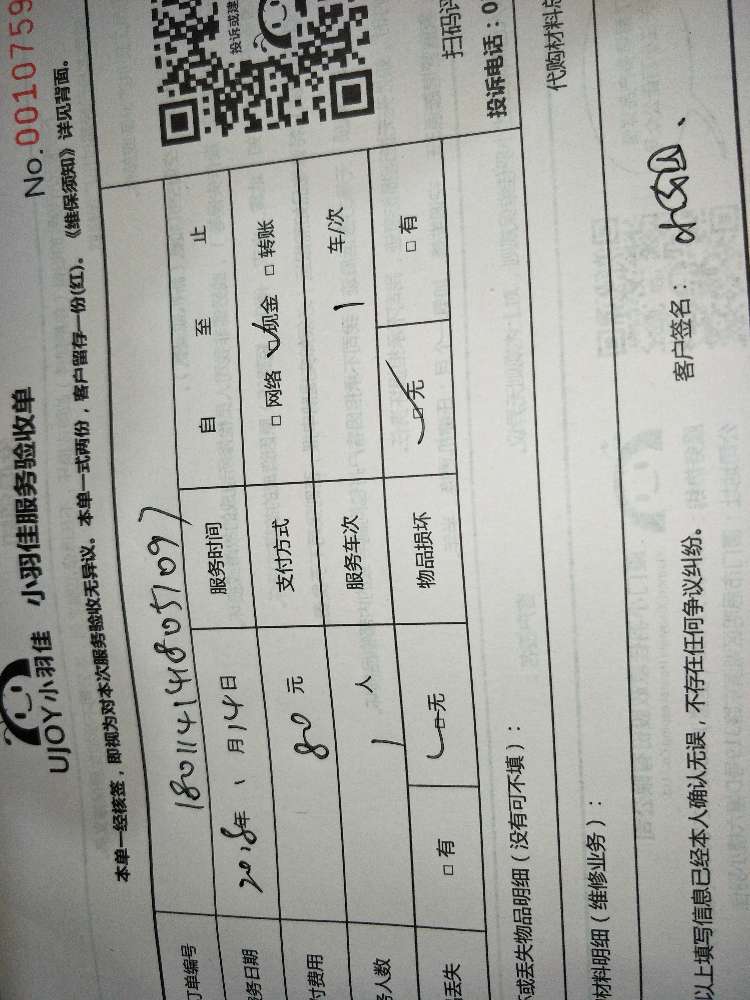 UJOY小羽佳 小羽佳服务验收单
No.0010759
本单一经核签，即视为对本次服务验收无异议。本单一式两份，客户留存一份(红)。《维保须知》详见背面。
订单编号 180114148051097
务日期 2018年1月14日 服务时间 自 至 止
付费用 80元 支付方式 □网络 ☑现金 □转账
务人数 1人 服务车次 1 车/次
丢失 □有 ☑无 物品损坏 ☑无 □有
投诉或建
扫码评
投诉电话：0
坏或丢失物品明细（没有可不填）：
材料明细（维修业务）： 代购材料总
以上填写信息已经本人确认无误，不存在任何争议纠纷。 客户签名：